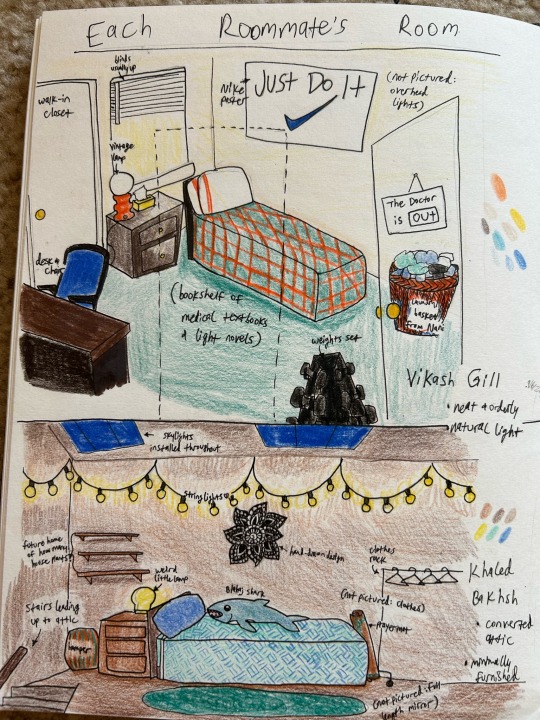 Each Roommate's Room
blinds
usually up
walk-in
closet
Nike
poster
Just Do It
(not pictured:
overhead
lights)
vintage
lamp
The Doctor
is OUT
desk &
chair
(bookshelf of
medical textbooks
& light novels)
laundry
basket
from Nani
weights set
Vikash Gill
• neat & orderly
• natural light
skylights
installed throughout
string lights
hand-drawn design
future home
of
house plants?
clothes
rack
weird
little lamp
Blåhaj shark
(not pictured: clothes)
Khaled
Bakhsh
• converted
attic
• minimally
furnished
Stairs leading
up to attic
hamper
prayer mat
(not pictured: full
length mirror)